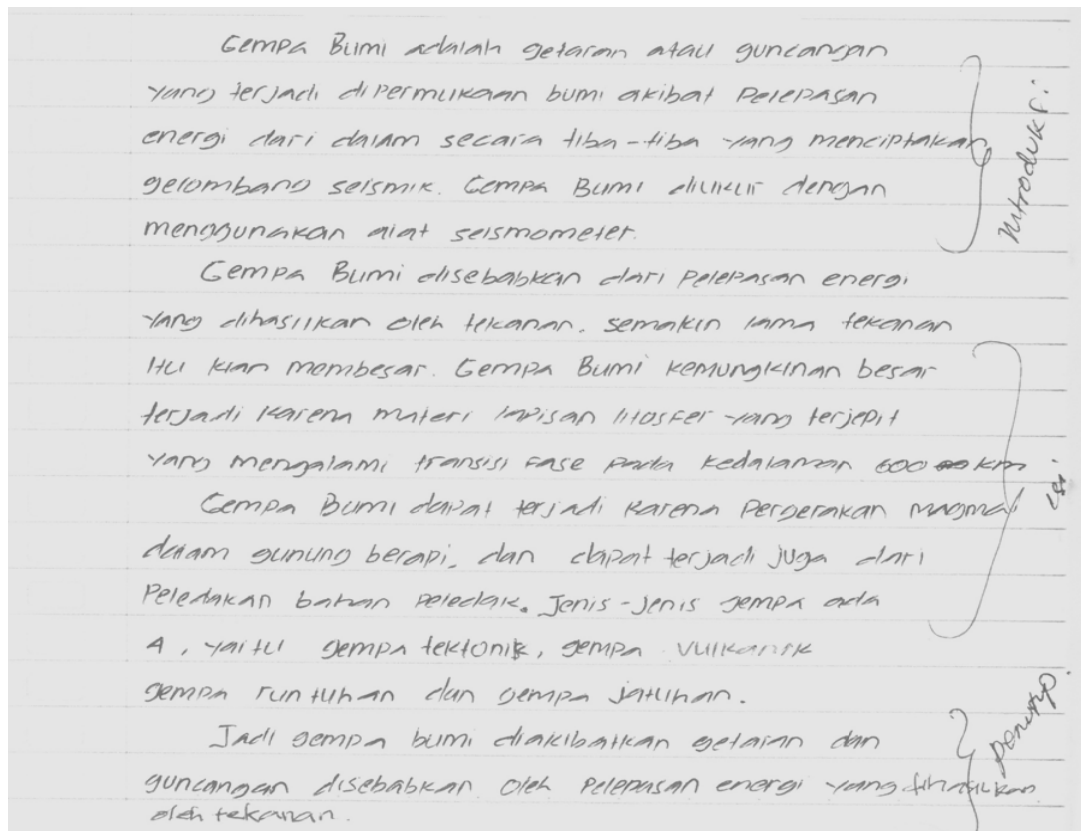 Gempa Bumi adalah getaran atau guncangan
yang terjadi dipermukaan bumi akibat Pelepasan
energi dari dalam secara tiba-tiba yang menciptakan
gelombang seismik. Gempa Bumi diukur dengan
menggunakan alat seismometer.
Introduksi.
Gempa Bumi disebabkan dari pelepasan energi
yang dihasilkan oleh tekanan. semakin lama tekanan
itu kian membesar. Gempa Bumi kemungkinan besar
terjadi karena materi lapisan litosfer yang terjepit
yang mengalami transisi fase pada kedalaman 600 km
Gempa Bumi dapat terjadi karena Pergerakan magma
dalam gunung berapi, dan dapat terjadi juga dari
Peledakan bahan peledak. Jenis-jenis gempa ada
4, yaitu gempa tektonik, gempa vulkanik
gempa runtuhan dan gempa jatuhan.
isi
Jadi gempa bumi diakibatkan getaran dan
guncangan disebabkan oleh Pelepasan energi yang dihasilkan
oleh tekanan.
penutup.